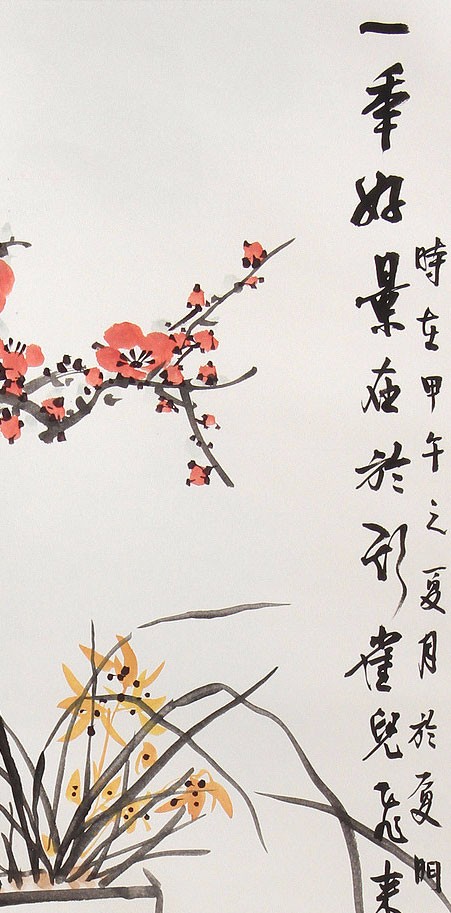 一秊好景在於形雀兒飛来
時在甲午之夏月於厦門